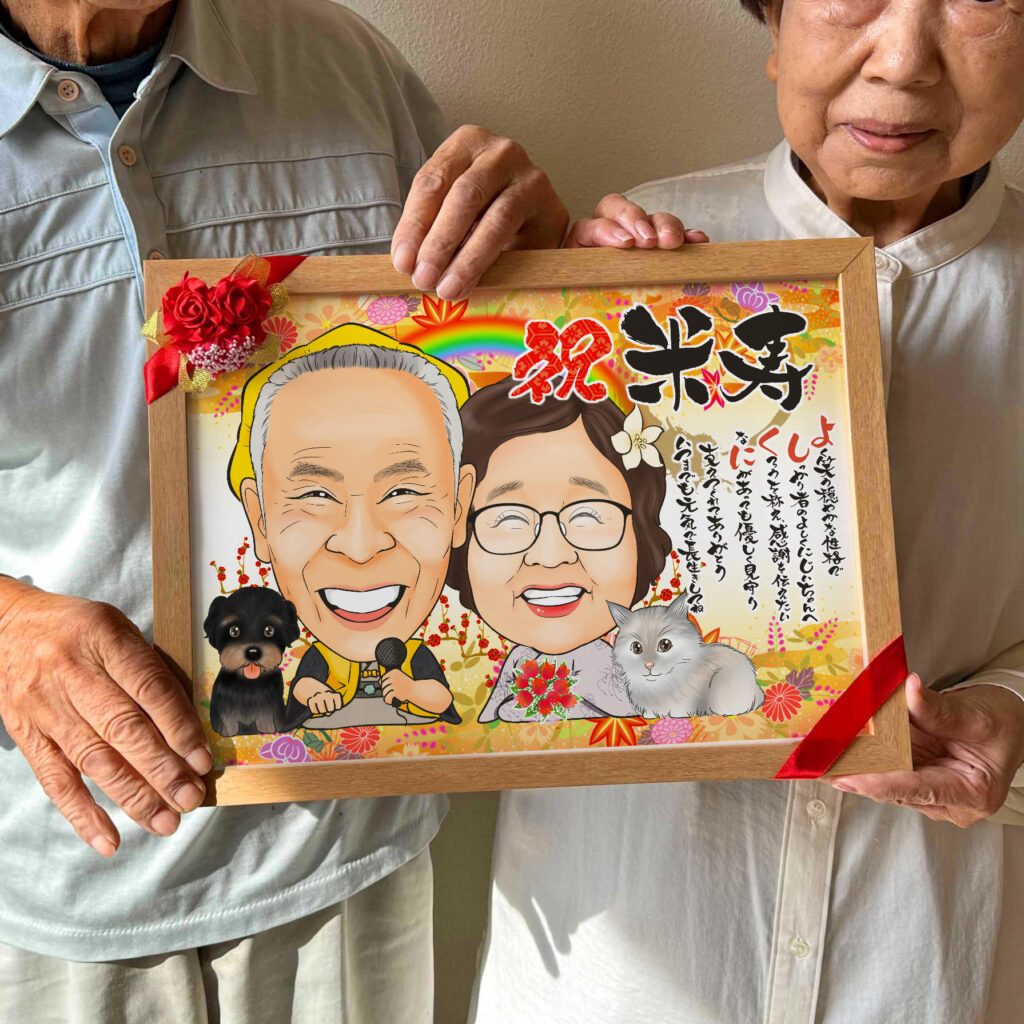 祝 米寿
よく笑い穏やかな性格で
しっかり者のよしくにじいちゃんへ
くろうを称え、感謝を伝えたい
なにがあっても優しく見守り
支えてくれてありがとう
いつまでも元気で長生きしてね